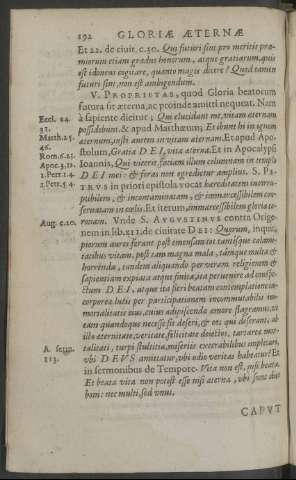 192 GLORIÆ ÆTERNÆ
Et 22. de ciuit. c. 30. Qui futuri sint pro meritis præ-
miorum etiam gradus honorum, atque gloriarum, quis
est idoneus cogitare, quanto magis dicere? Quod tamen
futuri sint, non est ambigendum.
V. PROPRIETAS, quod Gloria beatorum
futura sit æterna, ac proinde amitti nequeat. Nam
Eccl. 24. 31.
à sapiente dicitur; Qui elucidant me, vitam æternam
possidebunt. & apud Matthæum; Et ibunt hi in ignem
Matth. 25. 46.
æternum, iusti autem in vitam æternam. Et apud Apo-
Rom. 6. 23.
stolum, Gratia DEI, vita æterna. Et in Apocalypsi
Apoc. 3. 12.
Ioannis, Qui vicerit, faciam illum columnam in templo
1. Petr. 1. 4.
DEI mei: & foras non egredietur amplius. S. PE-
1. Petr. 5. 4.
TRVS in priori epistola vocat hæreditatem incorru-
ptibilem, & incontaminatam, & immarcessibilem con-
seruatam in cœlis. Et iterum, immarcessibilem gloriæ co-
Aug. c. 20.
ronam. Vnde S. AVGVSTINVS contra Orige-
nem in lib. 21. de ciuitate DEI: Quorum, inquit,
piorum aures ferant post emensam tot tantisque calami-
tatibus vitam, post tam magna mala, támque multa &
horrenda, tandem aliquando per veram religionem &
sapientiam expiata atque finita, ita perueniri ad conspe-
ctum DEI, atque ita fieri beatam contemplatione in-
corporeæ lucis per participationem incommutabilis im-
mortalitatis eius, cuius adipiscendæ amore flagramus, vt
eam quandoque necesse sit deseri, & eos qui deserunt, ab
illa æternitate, veritate, felicitate deiectos, tartareæ mor-
A. serm. 113.
talitati, turpi stultitiæ, miseriis execrabilibus implicari,
vbi DEVS amittatur, vbi odio veritas habeatur? Et
in sermonibus de Tempore. Vita non est, nisi beata.
Et beata vita non potest esse nisi æterna, vbi sunt dies
boni: nec multi, sed vnus.
CAPVT